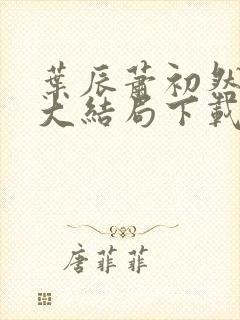 葉辰蕭初然
大結局下載
唐菲菲